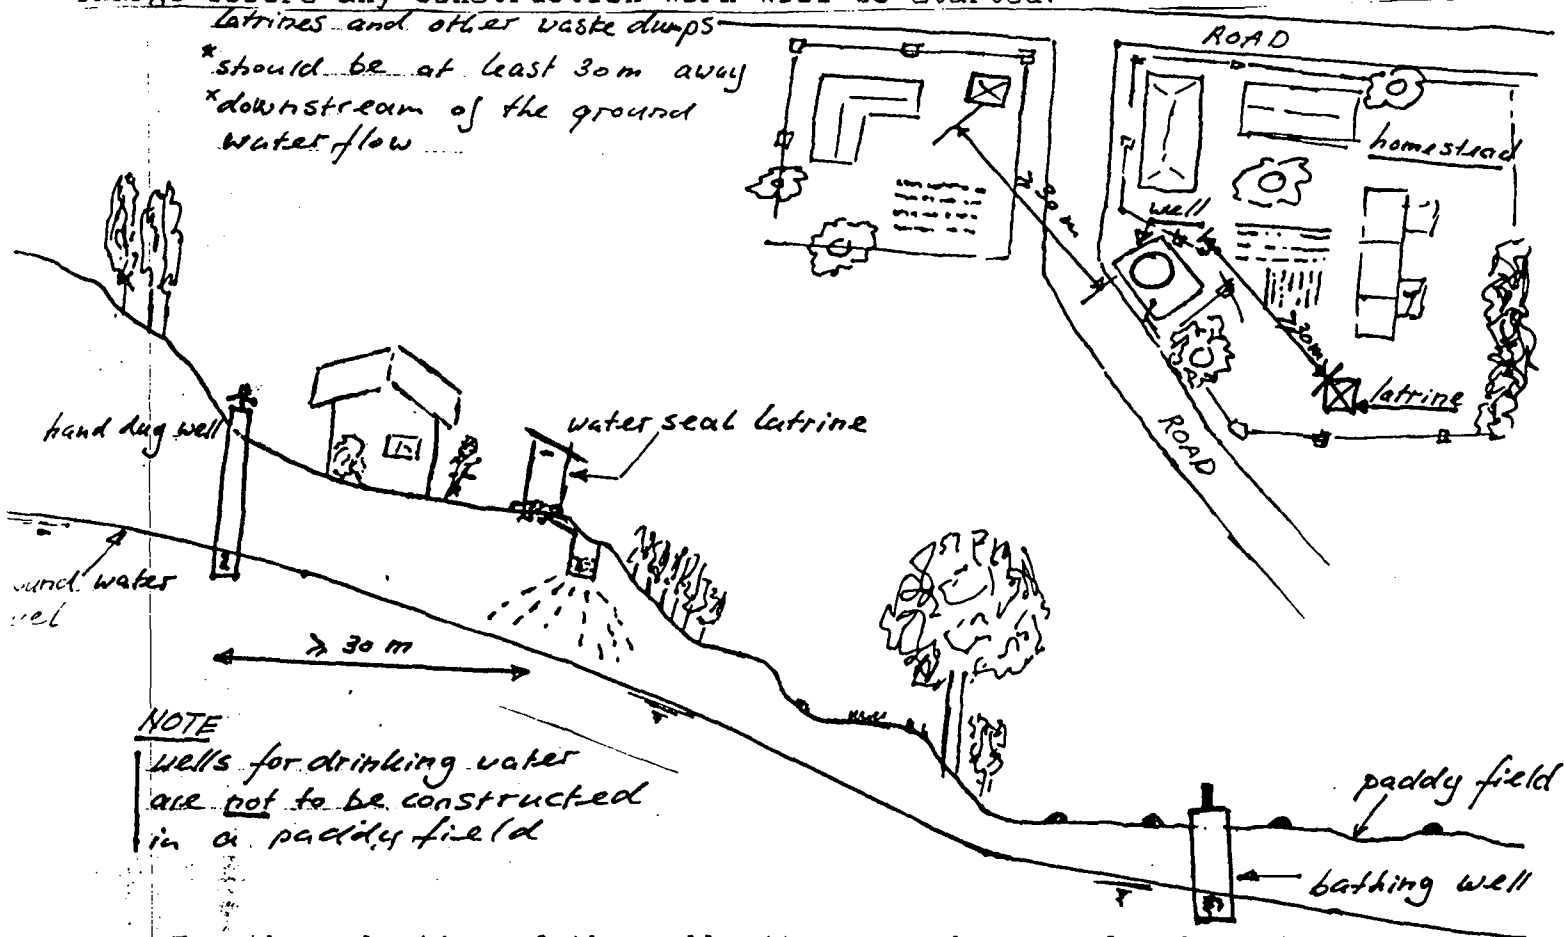 latrines and other waste dumps
* should be at least 30m away
* downstream of the ground
water flow
ROAD
homestead
well
≥ 30 m
≥ 30m
latrine
ROAD
hand dug well
water seal latrine
water
≥ 30 m
NOTE
wells for drinking water
are not to be constructed
in a paddy field
paddy field
bathing well